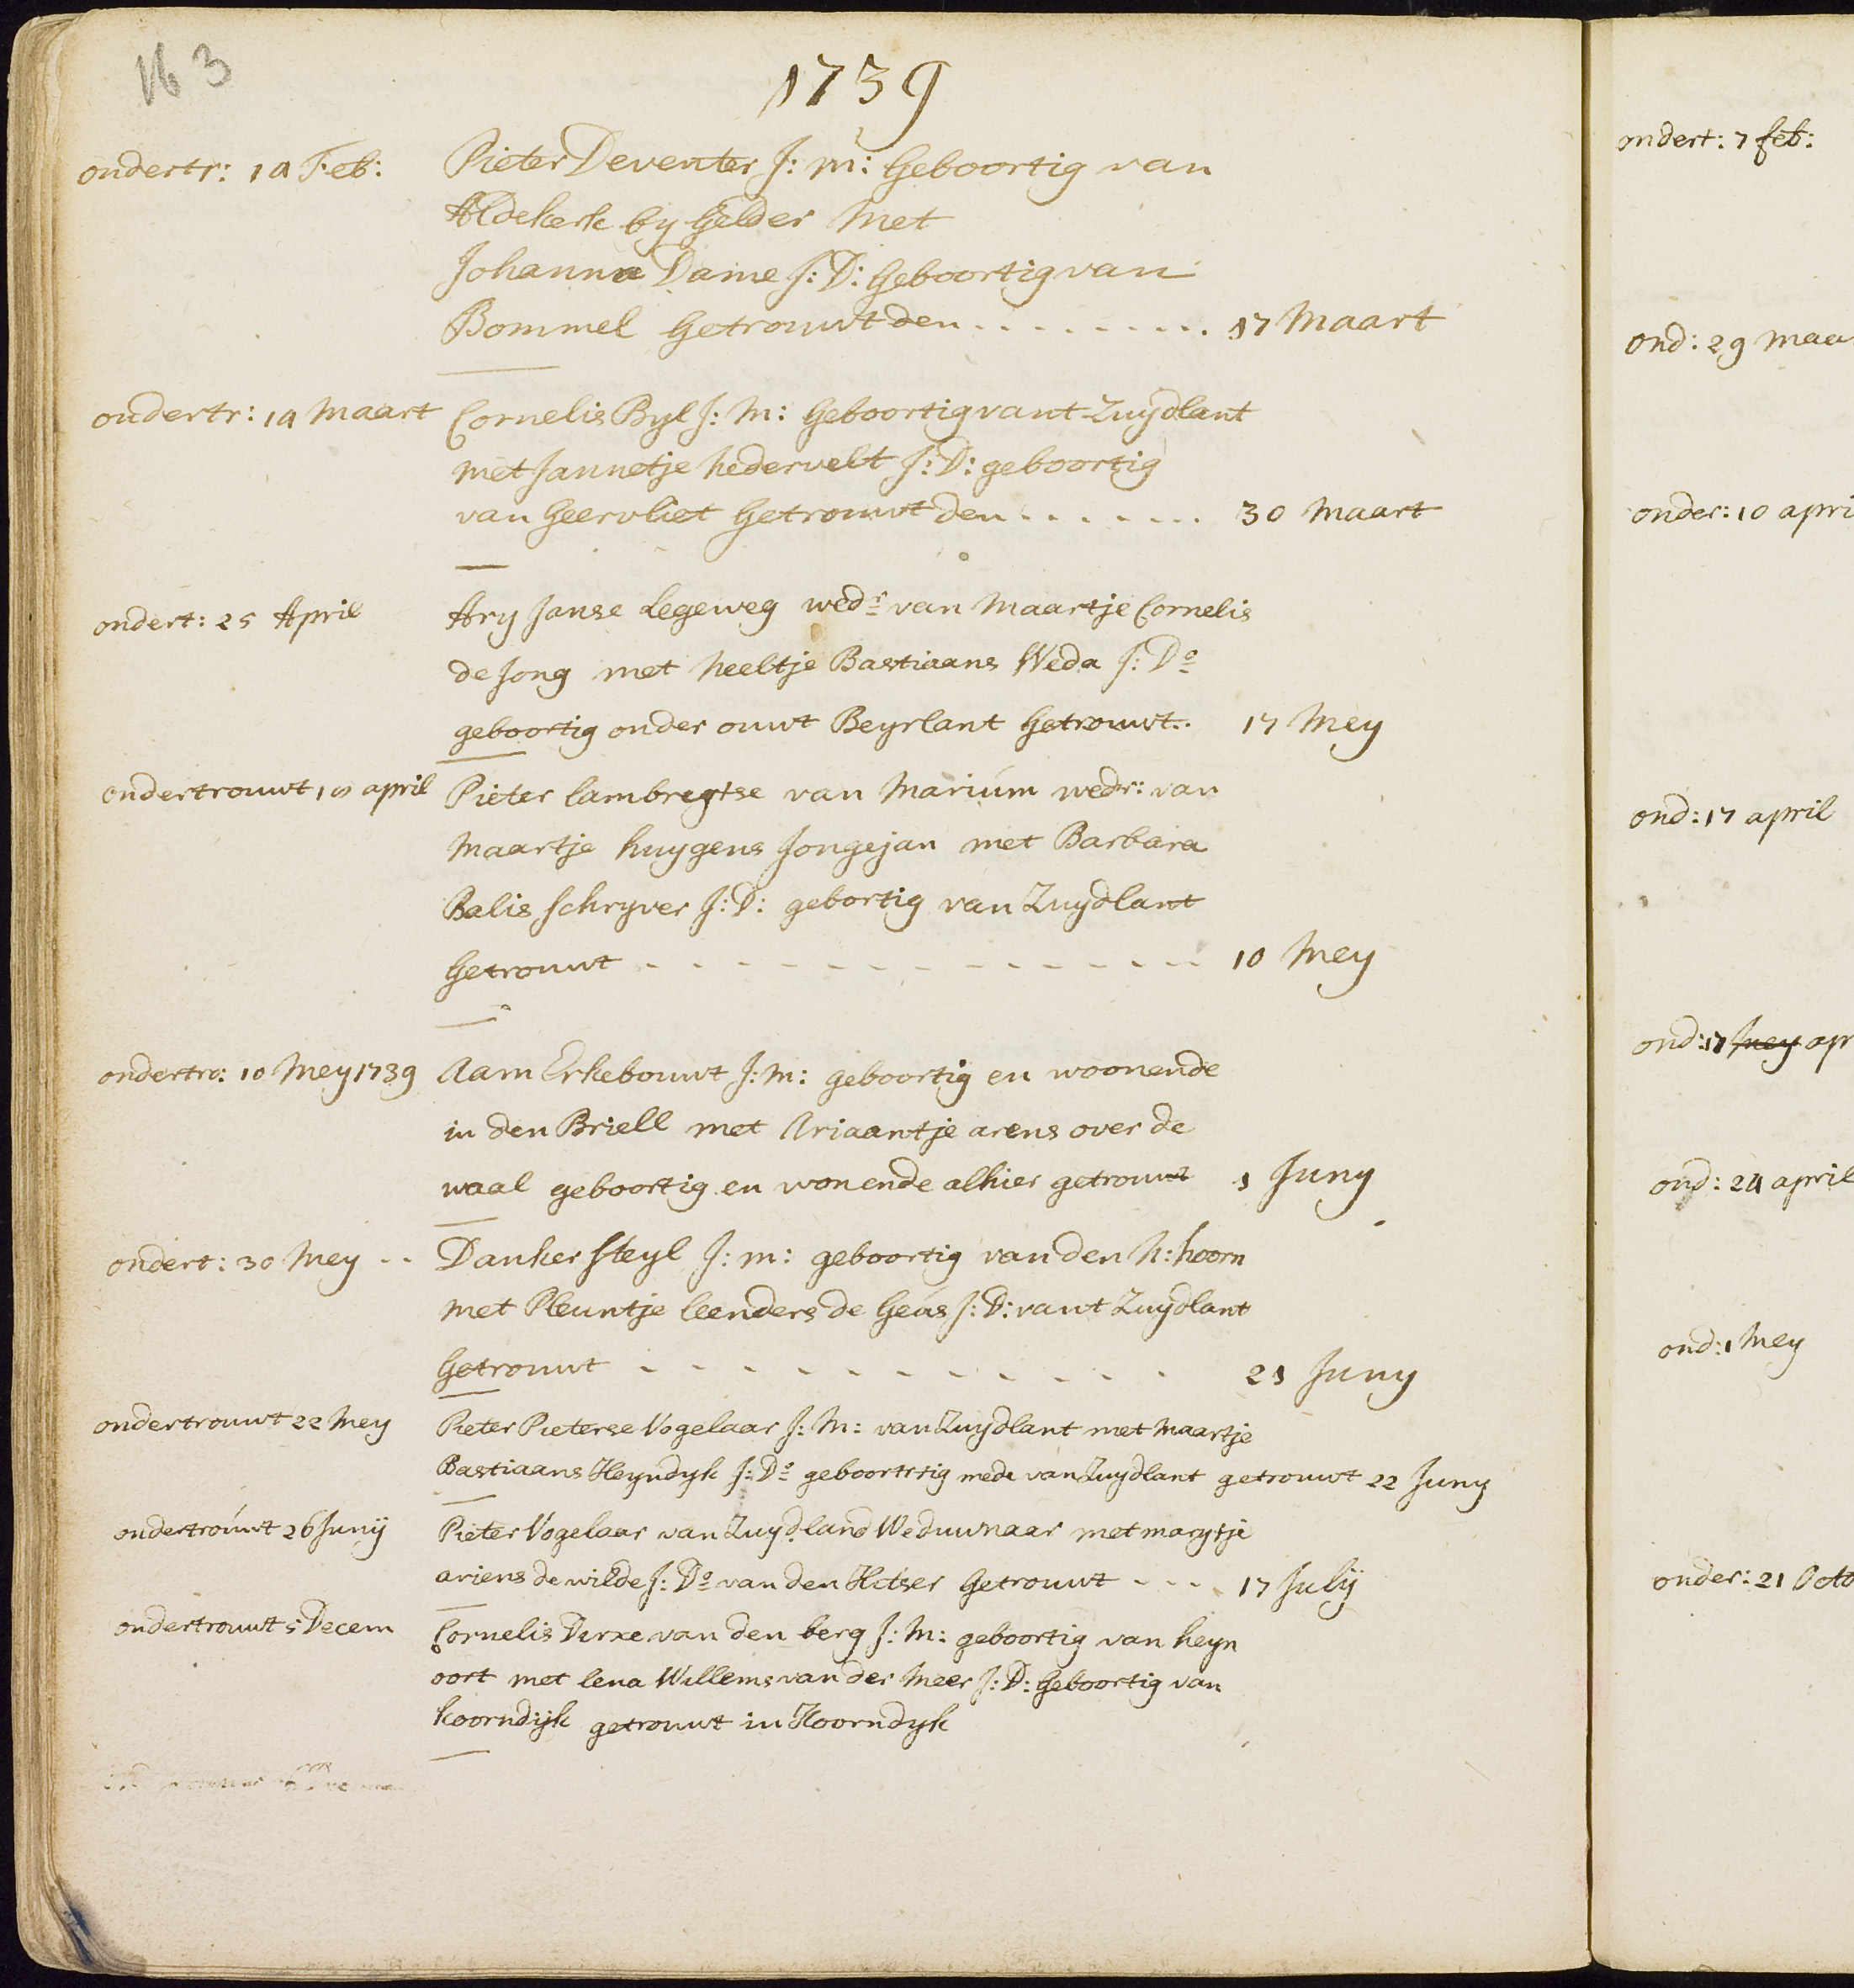 163
1739
ondertr: 14 Feb: Pieter Deventer J: M: Geboortig van
Aldekerk by Gelder Met
Johanna Dame J: D: Geboortig van
Bommel Getrouwt den . . . . . . . . . 17 Maart
ondertr: 14 Maart Cornelis Byl J: M: Geboortig vant Zuydlant
met Jannetje hedervelt J: D: geboortig
van Geervliet Getrouwt den . . . . . . . 30 Maart
ondert: 25 April Ary Janse Legeweg wedr van Maartje Cornelis
de Jong met Neeltje Bastiaans Weda J: Do
geboortig onder ouwt Beyrlant Getrouwt.. 17 Mey
ondertrouwt april Pieter lambregtse van Marium wedr: van
Maartje huygens Jongejan met Barbara
Balis Schryver J: D: gebortig van Zuydlant
Getrouwt - - - - - - - - - - - 10 Mey
ondertro: 10 Mey 1739 Aam Erkebouwt J: M: geboortig en woonende
in den Briell met Ariaantje arens over de
waal geboortig en wonende alhier getrouwt 1 Juny
ondert: 30 Mey .. Danker Steyl J: m: geboortig van den N: hoorn
met Pleuntje leenders de Geus J: D: vant Zuydlant
Getrouwt - - - - - - - - - - 21 Juny
ondertrouwt 22 Mey Pieter Pieterse Vogelaar J: M: van Zuydlant met Maartje
Bastiaans Heyndyk J: Do geboortrtig mede van Zuydlant getrouwt 22 Juny
ondertrouwt 26 Junij Pieter Vogelaar van Zuydland Weduwnaar met marytje
ariens de wilde J: Do van den Hitser Getrouwt - - - - 17 Julij
ondertrouwt 5 Decem Cornelis Dirxe van den berg J: M: geboortig van heyn
oort met lena Willems van der Meer J: D: Geboortig van
koorndijk getrouwt in Koorndyk
ondert: 7 feb:
ond: 29 maa
onder: 10 apri
ond: 17 april
ond: 17 mey apr
ond: 24 april
ond: 1 Mey
onder: 21 Octo